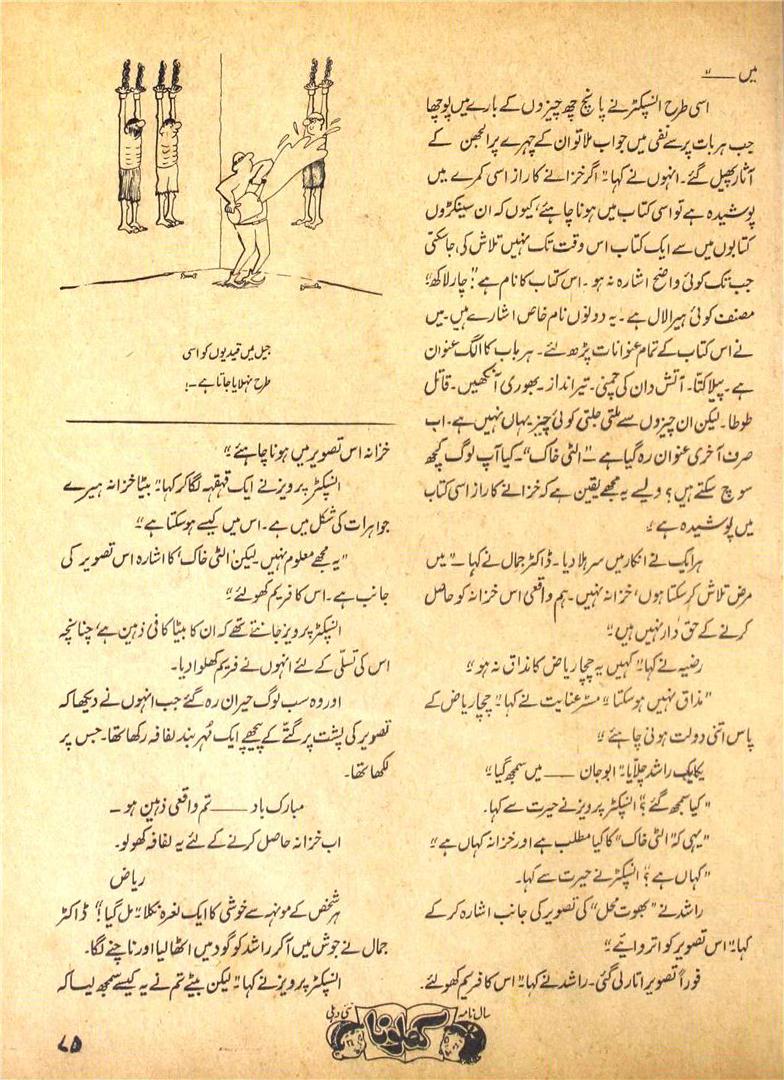 میں ــــــ"
اسی طرح انسپکٹر نے پانچ چھ چیزوں کے بارے میں پوچھا
جب ہر بات پر سے نفی میں جواب ملا تو ان کے چہرے پر الجھن کے
آثار پھیل گئے۔ انہوں نے کہا "اگر خزانے کا راز اسی کمرے میں
پوشیدہ ہے تو اسی کتاب میں ہونا چاہئے، کیوں کہ ان سینکڑوں
کتابوں میں سے ایک کتاب اس وقت تک نہیں تلاش کی جاسکتی
جب تک کوئی واضح اشارہ نہ ہو۔ اس کتاب کا نام ہے "چار لاکھ"
مصنف کوئی ہیرا لال ہے۔ یہ دونوں نام خاص اشارے ہیں۔ میں
نے اس کتاب کے تمام عنوانات پڑھ لئے۔ ہر باب کا الگ عنوان
ہے۔ پیلا کتا۔ آتش دان کی چمنی۔ تیر انداز۔ بھوری آنکھیں۔ قاتل
طوطا۔ لیکن ان چیزوں سے ملتی جلتی کوئی چیز یہاں نہیں ہے۔ اب
صرف آخری عنوان رہ گیا ہے ــ "الٹی خاک"۔ کیا آپ لوگ کچھ
سوچ سکتے ہیں؟ ویسے یہ مجھے یقین ہے کہ خزانے کا راز اسی کتاب
میں پوشیدہ ہے"
ہر ایک نے انکار میں سر ہلا دیا۔ ڈاکٹر جمال نے کہا ــ "میں
مرض تلاش کر سکتا ہوں، خزانہ نہیں۔ ہم واقعی اس خزانہ کو حاصل
کرنے کے حق دار نہیں ہیں"
رضیہ نے کہا "کہیں یہ چچا ریاض کا مذاق نہ ہو"
"مذاق نہیں ہو سکتا" مسٹر عنایت نے کہا "چچا ریاض کے
پاس اتنی دولت ہونی چاہئے"
یکایک راشد چلّایا "ابو جان ــــــ میں سمجھ گیا"
"کیا سمجھ گئے؟" انسپکٹر پرویز نے حیرت سے کہا۔
"یہی کہ "الٹی خاک" کا کیا مطلب ہے اور خزانہ کہاں ہے"
"کہاں ہے؟" انسپکٹر نے حیرت سے کہا۔
راشد نے "بھوت محل" کی تصویر کی جانب اشارہ کر کے
کہا "اس تصویر کو اتروائیے"
فوراً تصویر اتار لی گئی۔ راشد نے کہا "اس کا فریم کھولئے۔
جیل میں قیدیوں کو اسی
طرح نہلایا جاتا ہے ــ!
خزانہ اس تصویر میں ہونا چاہئے"
انسپکٹر پرویز نے ایک قہقہہ لگا کر کہا "بیٹا خزانہ ہیرے
جواہرات کی شکل میں ہے۔ اس میں کیسے ہو سکتا ہے"
"یہ مجھے معلوم نہیں۔ لیکن 'الٹی خاک' کا اشارہ اس تصویر کی
جانب ہے۔ اس کا فریم کھولئے"
انسپکٹر پرویز جانتے تھے کہ ان کا بیٹا کافی ذہین ہے، چنانچہ
اس کی تسلّی کے لئے انہوں نے فریم کھلوا دیا۔
اور وہ سب لوگ حیران رہ گئے جب انہوں نے دیکھا کہ
تصویر کی پشت پر گتّے کے پیچھے ایک مُہر بند لفافہ رکھا تھا۔ جس پر
لکھا تھا۔
مبارک باد ــــــ تم واقعی ذہین ہو ــ
اب خزانہ حاصل کرنے کے لئے یہ لفافہ کھولو۔
ریاض
ہر شخص کے مونہہ سے خوشی کا ایک نعرہ نکلا "مل گیا!" ڈاکٹر
جمال نے جوش میں آکر راشد کو گود میں اٹھا لیا اور ناچنے لگا۔
انسپکٹر پرویز نے کہا "لیکن بیٹے تم نے یہ کیسے سمجھ لیا کہ
سال نامہ کھلونا نئی دہلی
۷۵